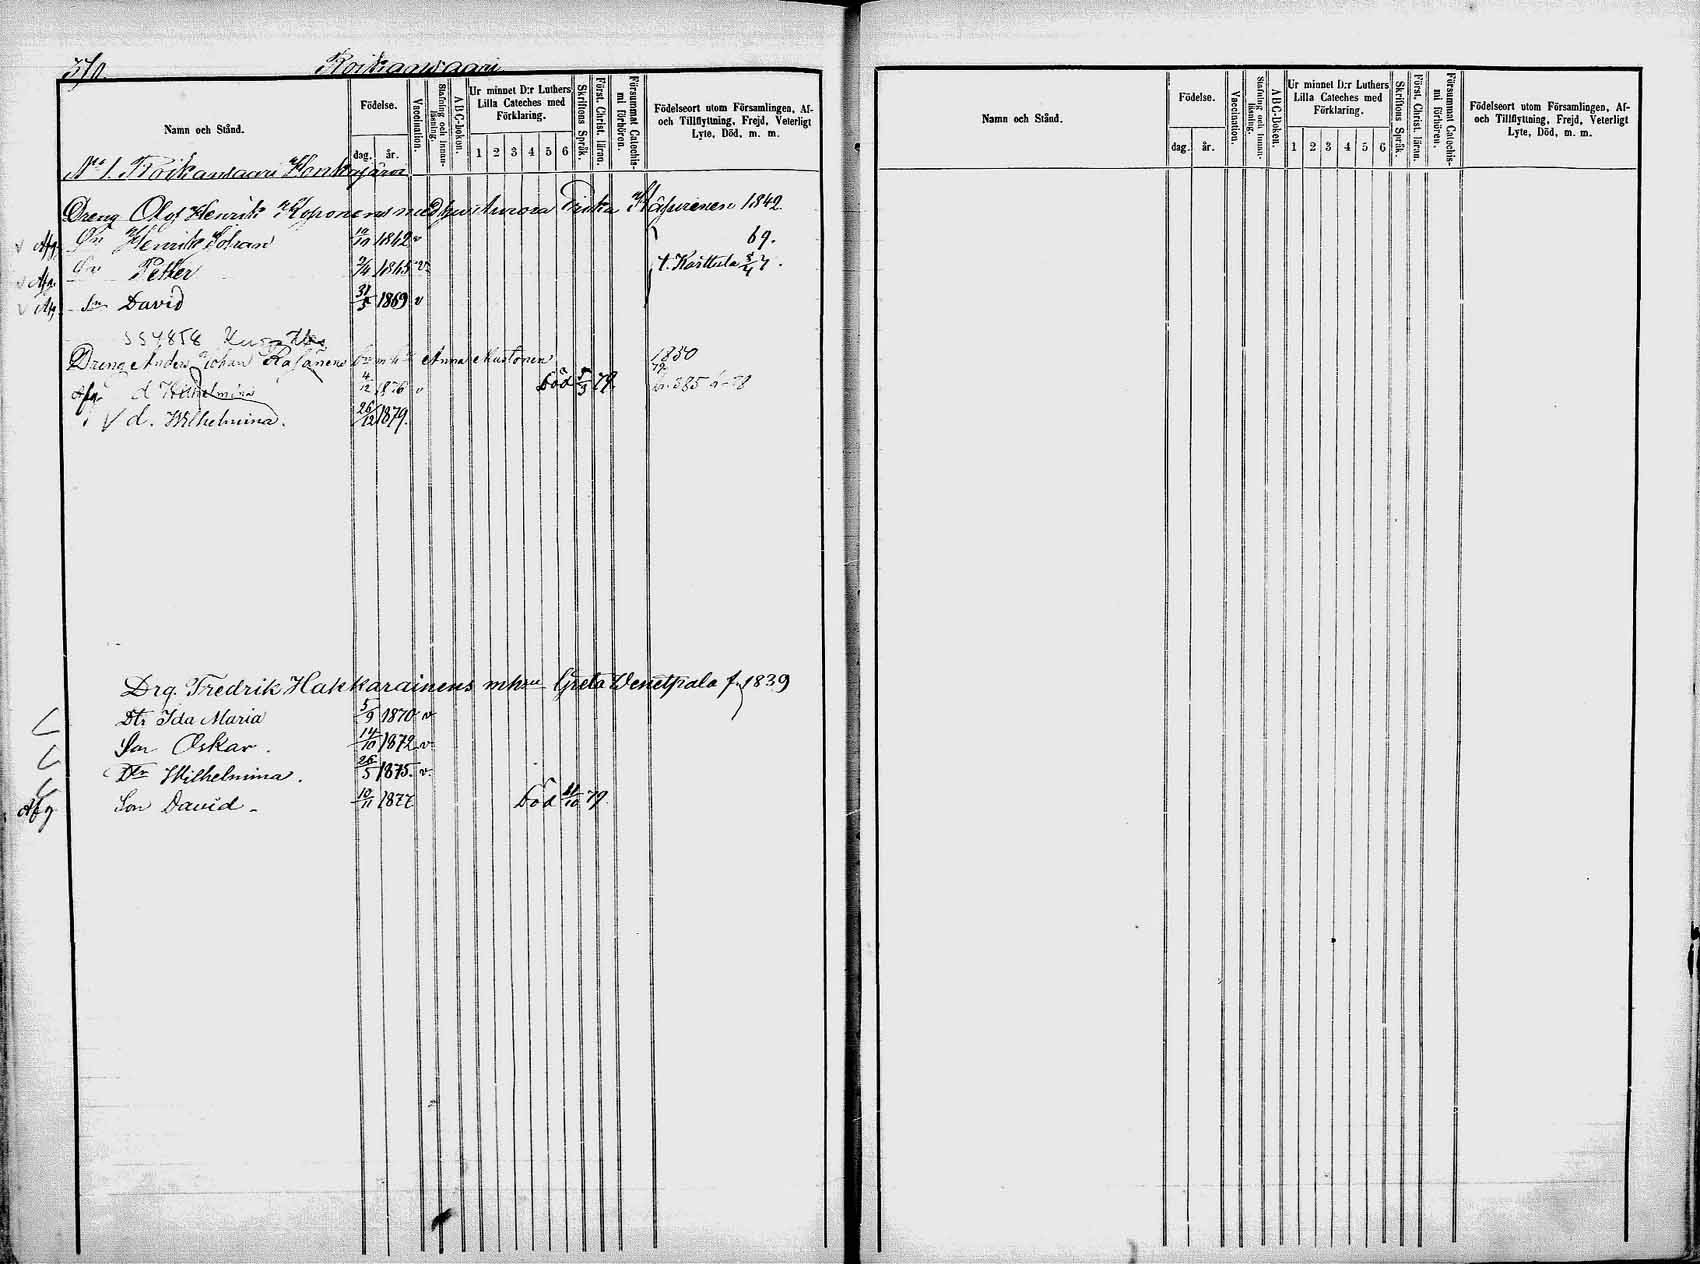 Roikansaari
Namn och Stånd.
Födelse.
dag.
år.
Vaccination.
Stafning och innan-
läsning.
ABC-boken.
Ur minnet D:r Luthers
Lilla Cateches med
Förklaring.
1 2 3 4 5 6
Skriftens Språk.
Först. Christ. läran.
Försummat Catechis-
mi förhören.
Födelseort utom Församlingen, Af-
och Tillflyttning, Frejd, Veterligt
Lyte, Död, m. m.
No 1. Roikansaari
Dreng Olof Henrik Koponens med hu Aurora 1842
Afg. Sn Henrik Johan 10/10 1842 v 69.
Afg. Sn Petter 1865 v t. Karttula
v Afg. Sn David 31/5 1869 v
Dreng Anders Johan Räsänens Anna 1850
Afg. d 4/12 1876 v död 5/3 79.
V d. Wilhelmina. 26/12 1879.
Drg. Fredrik Hakkarainens mhru Greta Wenetpalo f. 1839
Dtr Ida Maria 5/9 1870 v
Son Oskar. 14/10 1872 v
Dtr Wilhelmina. 26/5 1875. v.
Afg Son David 10/11 1877 död 11/10 79.
Namn och Stånd.
Födelse.
dag.
år.
Vaccination.
Stafning och innan-
läsning.
ABC-Boken.
Ur minnet D:r Luthers
Lilla Cateches med
Förklaring.
1 2 3 4 5 6
Skriftens Språk.
Först. Christ. läran.
Försummat Catechis-
mi förhören.
Födelseort utom Församlingen, Af-
och Tillflyttning, Frejd, Veterligt
Lyte, Död, m. m.